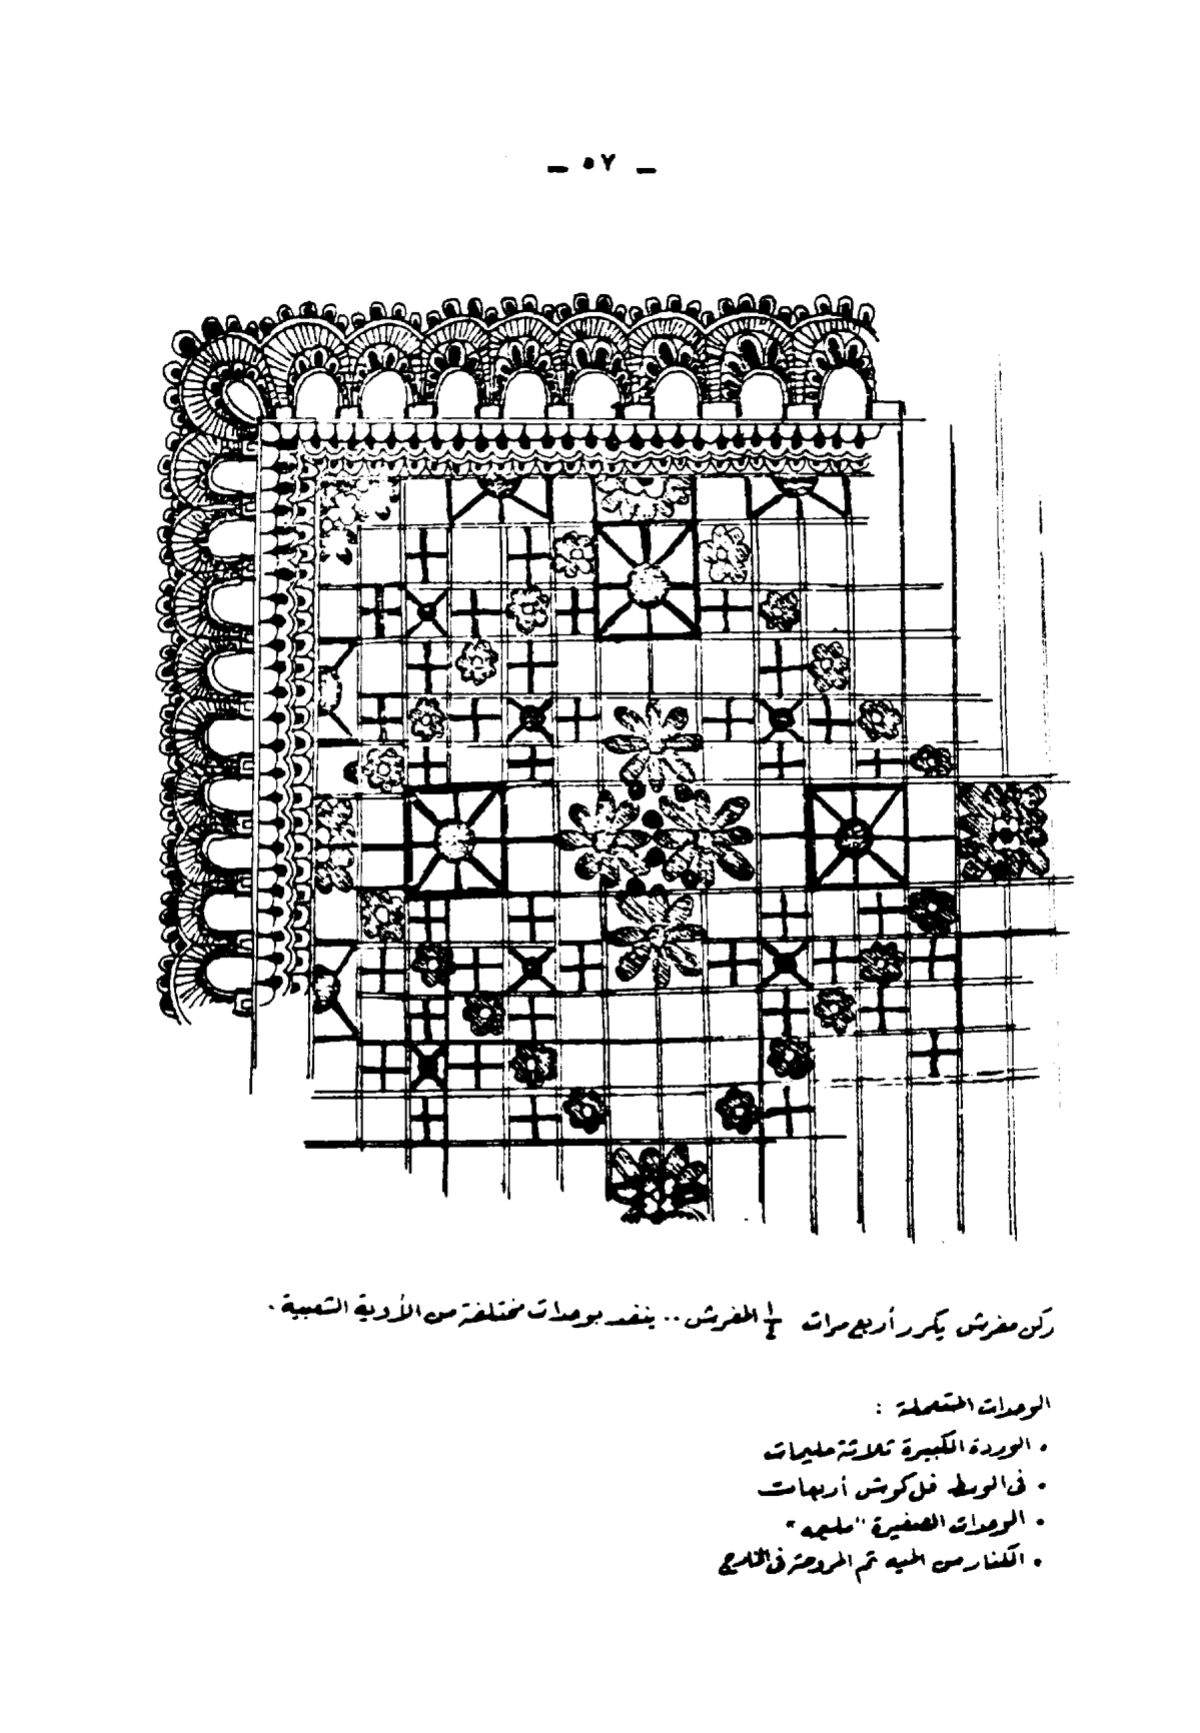 ـ ٥٧ ـ
ركن مفرش يكرر أربع مرات ١/٤ المفرش .. ينفذ بوحدات مختلفة من الأوية الشعبية .
الوحدات المستعملة :
• الوردة الكبيرة ثلاثة مليمات
• فى الوسط فل كوش أربعات
• الوحدات الصغيرة "مليم"
• الكنار من الميه ثم المروحة فى الخارج